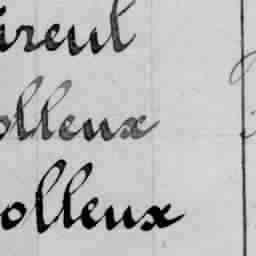 ireul
olleux
olleux